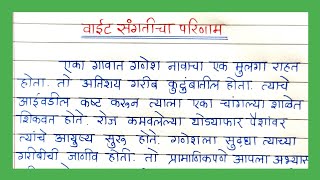 वाईट संगतीचा परिणाम
एका गावात गणेश नावाचा एक मुलगा राहत
होता. तो अतिशय गरीब कुटुंबातील होता. त्याचे
आईवडील कष्ट करून त्याला एका चांगल्या शाळेत
शिकवत होते. रोज कमवलेल्या थोड्याफार पैशांवर
त्यांचे आयुष्य सुरू होते. गणेशला सुद्धा त्याच्या
गरीबीची जाणीव होती. तो प्रामाणिकपणे आपला अभ्यास